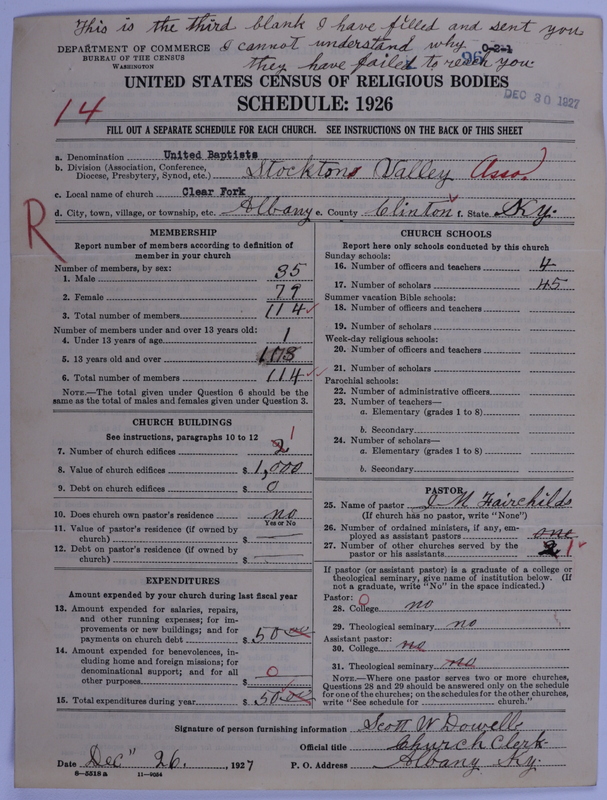 This is the third blank I have filled and sent you
DEPARTMENT OF COMMERCE I cannot understand why 0-2-1
BUREAU OF THE CENSUS 96
WASHINGTON they have failed to reach you
UNITED STATES CENSUS OF RELIGIOUS BODIES
14 SCHEDULE: 1926 DEC 30 1927
FILL OUT A SEPARATE SCHEDULE FOR EACH CHURCH. SEE INSTRUCTIONS ON THE BACK OF THIS SHEET
a. Denomination United Baptists
b. Division (Association, Conference, Diocese, Presbytery, Synod, etc.) Stocktons Valley Asso.
c. Local name of church Clear Fork
d. City, town, village, or township, etc. Albany e. County Clinton f. State Ky.
R
MEMBERSHIP
Report number of members according to definition of
member in your church
Number of members, by sex:
1. Male 35
2. Female 79
3. Total number of members 114
Number of members under and over 13 years old:
4. Under 13 years of age 1
5. 13 years old and over 113
6. Total number of members 114
NOTE.—The total given under Question 6 should be
same as the total of males and females given under Question 3.
CHURCH BUILDINGS
See instructions, paragraphs 10 to 12
7. Number of church edifices 2 1
8. Value of church edifices $ 1,000
9. Debt on church edifices $ 0
10. Does church own pastor's residence? no
Yes or No
11. Value of pastor's residence (if owned by
church) $
12. Debt on pastor's residence (if owned by
church) $
EXPENDITURES
Amount expended by your church during last fiscal year
13. Amount expended for salaries, repairs,
and other running expenses; for im-
provements or new buildings; and for
payments on church debt $ 50 00
14. Amount expended for benevolences, in-
cluding home and foreign missions; for
denominational support; and for all
other purposes $ 0
15. Total expenditures during year $ 50 00
CHURCH SCHOOLS
Report here only schools conducted by this church
Sunday schools:
16. Number of officers and teachers 4
17. Number of scholars 45
Summer vacation Bible schools:
18. Number of officers and teachers
19. Number of scholars
Week-day religious schools:
20. Number of officers and teachers
21. Number of scholars
Parochial schools:
22. Number of administrative officers
23. Number of teachers—
a. Elementary (grades 1 to 8)
b. Secondary
24. Number of scholars—
a. Elementary (grades 1 to 8)
b. Secondary
PASTOR
25. Name of pastor J M Fairchilds
(If church has no pastor, write "None")
26. Number of ordained ministers, if any, em-
ployed as assistant pastors one
27. Number of other churches served by the
pastor or his assistants 2 1
If pastor (or assistant pastor) is a graduate of a college or
theological seminary, give name of institution below. (If
not a graduate, write "No" in the space indicated.)
Pastor: 0
28. College no
29. Theological seminary no
Assistant pastor:
30. College no
31. Theological seminary no
NOTE.—Where one pastor serves two or more churches,
Questions 28 and 29 should be answered only on the schedule
for one of the churches; on the schedules for the other churches,
write "See schedule for church."
Signature of person furnishing information Scott W Dowell
Official title Church Clerk
Date Dec" 26, 1927 P. O. Address Albany Ky.
8-5518a 11-9054